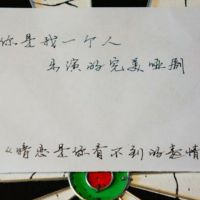 你是我一个人
出演的完美哑剧
《暗恋是你看不到的表情